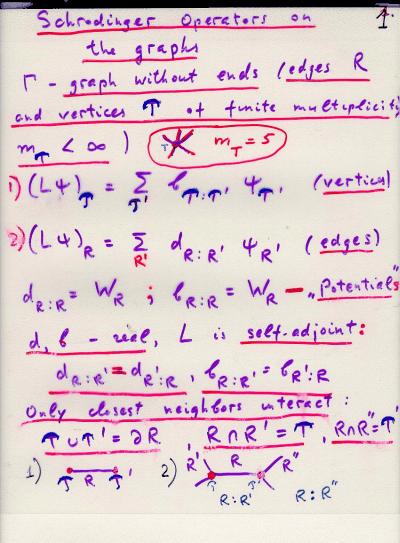 1.
Schrodinger Operators on
the graphs
Γ - graph without ends (edges R
and vertices T of finite multiplicity
m_T < ∞ ) T m_T = 5
1) (LΨ)_T = Σ_{T'} b_{T:T'} Ψ_{T'} (vertices)
2) (LΨ)_R = Σ_{R'} d_{R:R'} Ψ_{R'} (edges)
d_{R:R} = W_R ; b_{R:R} = W_R — "Potentials"
d, b - real, L is self-adjoint:
d_{R:R'} = d_{R':R} , b_{R:R'} = b_{R':R}
Only closest neighbors interact:
T ∪ T' = ∂R , R ∩ R' = T , R∩R'' = T'
1) T R T' 2) R' R R''
T T'
R:R' R:R''